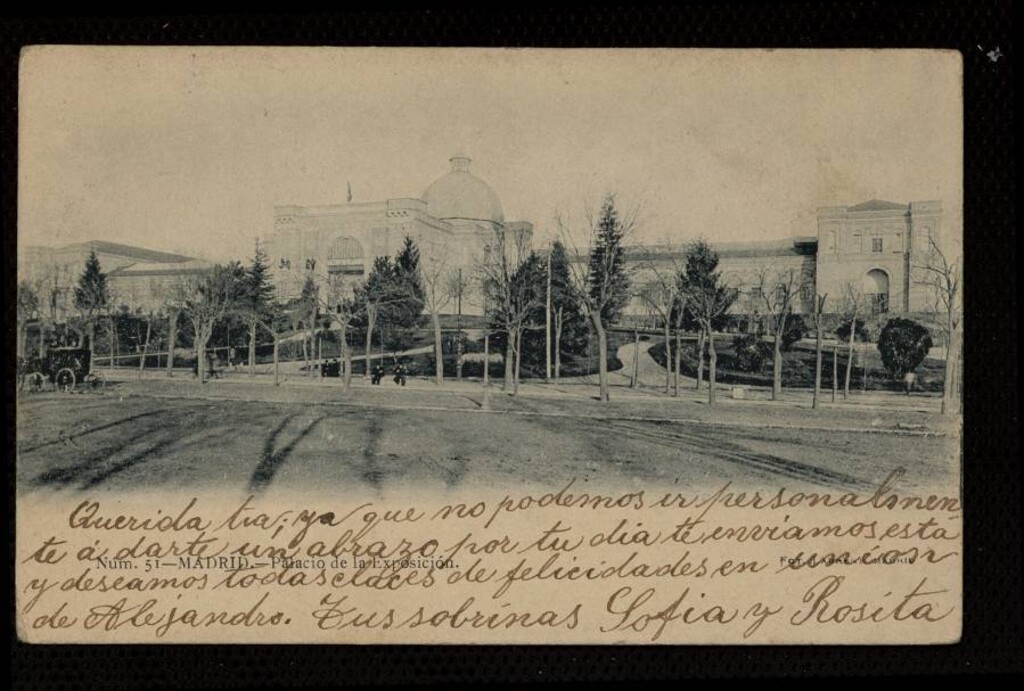 Querida tia; ya que no podemos ir personalmen
te á darte un abrazo por tu dia te enviamos esta
Núm. 51—MADRID.—Palacio de la Exposición.
y deseamos todas claces de felicidades en union
de Alejandro. Tus sobrinas Sofia y Rosita